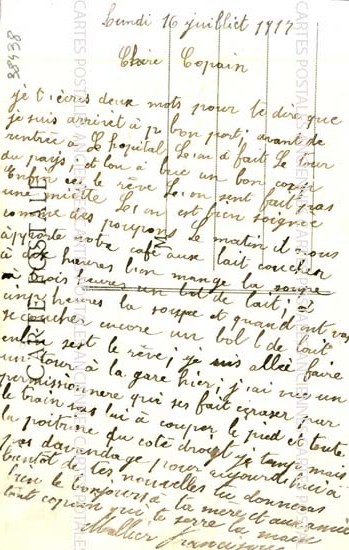 38438
Lundi 16 juillet 1917
Chère Copain
je t'écres deux mots pour te dire que
je suis arrivét à p bon port; avant de
rentrée a L hopital L on à fait Le tour
du pays et lon à bue un bon coup
Enfin ici le rêve L on sent fait pas
une miette L on est bien soignée
comme des poupons Le matin il vous
apporte votre café aux lait coucher
à dix heures l'on mange la soupe
à trois heures un bol de lait; à
cinq heures la soupe et quand ont vas
se coucher encore un bol l de lait
enfin sest le rêve; je suis allée faire
un tour à la gare hier; j'ai vue un
permissionnere qui ses fait écraser par
le train sas lui à couper le pied et toute
la poitrine du coté droigt je mais
pas davandage pour aujourd'hui à
bientot de tes nouvelles tu donneras
bien le bonjours à ta mere et aux amie
tont copain qui te serre la main
Mallier Francisque
CARTE POSTALE
CARTES POSTALES ANCIENNES